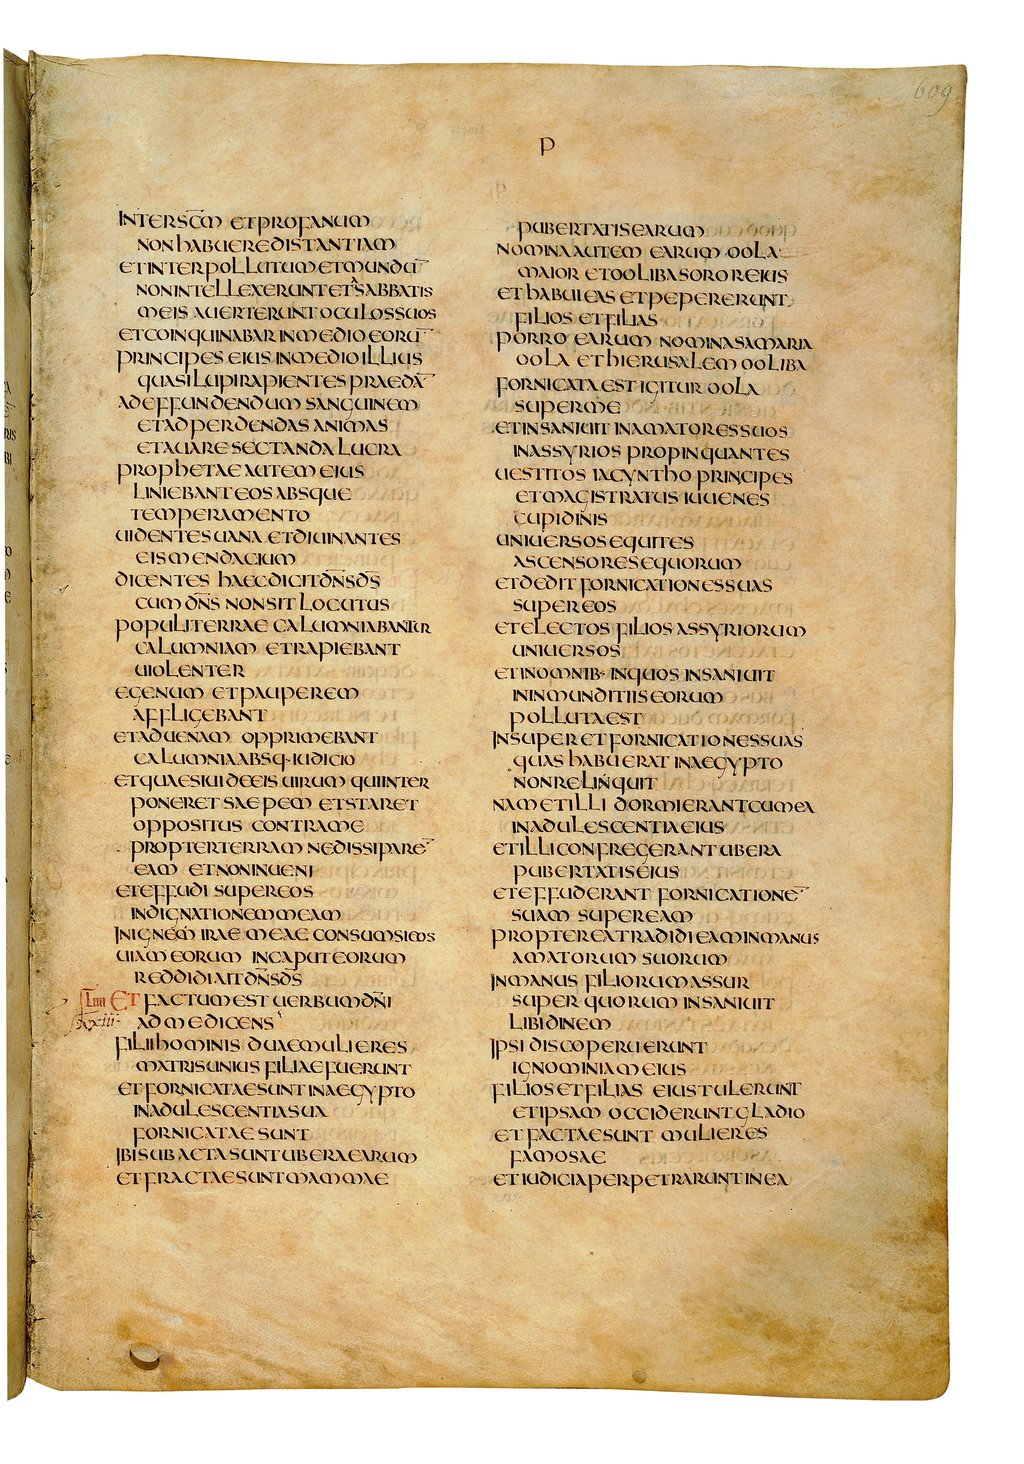 609
P
INTER SC̄M ET PROFANUM
NON HABUERE DISTANTIAM
ET INTER POLLUTUM ET MUNDŪ
NON INTELLEXERUNT ET A SABBATIS
MEIS AUERTERUNT OCULOS SUOS
ET COINQUINABAR IN MEDIO EORŪ
PRINCIPES EIUS IN MEDIO ILLIUS
QUASI LUPI RAPIENTES PRAEDĀ
AD EFFUNDENDUM SANGUINEM
ET AD PERDENDAS ANIMAS
ET AUARE SECTANDA LUCRA
PROPHETAE AUTEM EIUS
LINIEBANT EOS ABSQUE
TEMPERAMENTO
UIDENTES UANA ET DIUINANTES
EIS MENDACIUM
DICENTES HAEC DICIT DN̄S DS̄
CUM DN̄S NON SIT LOCUTUS
POPULI TERRAE CALUMNIABANTUR
CALUMNIAM ET RAPIEBANT
UIOLENTER
EGENUM ET PAUPEREM
AFFLIGEBANT
ET ADUENAM OPPRIMEBANT
CALUMNIA ABSQ· IUDICIO
ET QUAESIUI DE EIS UIRUM QUI INTER
PONERET SAEPEM ET STARET
OPPOSITUS CONTRA ME
PRO PTER TERRAM NE DISSIPARĒ
EAM ET NON INUENI
ET EFFUDI SUPER EOS
INDIGNATIONEM MEAM
IN IGNEM IRAE MEAE CONSUMSI EOS
UIAM EORUM IN CAPUT EORUM
REDDIDI AIT DN̄S DS̄
LIIII ET FACTUM EST UERBUM DN̄I
xxiii· AD ME DICENS
FILII HOMINIS DUAE MULIERES
MATRIS UNIUS FILIAE FUERUNT
ET FORNICATAE SUNT IN AEGYPTO
IN ADULESCENTIA SUA
FORNICATAE SUNT
IBI SUBACTA SUNT UBERA EARUM
ET FRACTAE SUNT MAMMAE
PUBERTATIS EARUM
NOMINA AUTEM EARUM OOLA
MAIOR ET OOLIBA SOROR EIUS
ET HABUI EAS ET PEPERERUNT
FILIOS ET FILIAS
PORRO EARUM NOMINA SAMARIA
OOLA ET HIERUSALEM OOLIBA
FORNICATA EST IGITUR OOLA
SUPER ME
ET INSANIUIT IN AMATORES SUOS
IN ASSYRIOS PROPINQUANTES
UESTITOS IACYNTHO PRINCIPES
ET MAGISTRATUS IUUENES
CUPIDINIS
UNIUERSOS EQUITES
ASCENSORES EQUORUM
ET DEDIT FORNICATIONES SUAS
SUPER EOS
ET ELECTOS FILIOS ASSYRIORUM
UNIUERSOS
ET IN OMNIB· IN QUOS INSANIUIT
IN INMUNDITIIS EORUM
POLLUTA EST
INSUPER ET FORNICATIONES SUAS
QUAS HABUERAT IN AEGYPTO
NON RELINQUIT
NAM ET ILLI DORMIERANT CUM EA
IN ADULESCENTIA EIUS
ET ILLI CONFREGERANT UBERA
PUBERTATIS EIUS
ET EFFUDERANT FORNICATIONĒ
SUAM SUPER EAM
PROPTEREA TRADIDI EAM IN MANUS
AMATORUM SUORUM
IN MANUS FILIORUM ASSUR
SUPER QUORUM INSANIUIT
LIBIDINEM
IPSI DISCOPERUERUNT
IGNOMINIAM EIUS
FILIOS ET FILIAS EIUS TULERUNT
ET IPSAM OCCIDERUNT GLADIO
ET FACTAE SUNT MULIERES
FAMOSAE
ET IUDICIA PERPETRARUNT IN EA